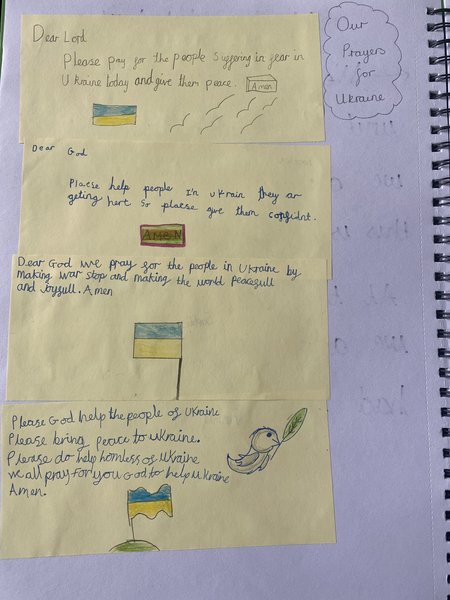 Our
Prayers
for
Ukraine
Dear Lord
Please pray for the people suffering in fear in
Ukraine today and give them peace.
Amen
Dear God
Plaese help people I'n ukrain they ar
geting hert so plaese give them confidnt.
AMEN
Dear God we pray for the people in Ukraine by
making war stop and making the world Peacefull
and Joyfull. Amen
Please God help the people of Ukraine
Please bring peace to ukraine.
Please do help homless of Ukraine
we all pray for you God to help Ukraine
Amen.